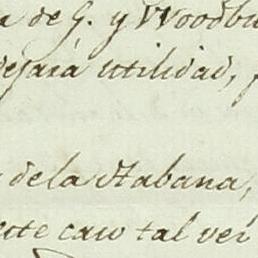 de G. y Woodbu
dejará utilidad,
de la Habana,
este caso tal vez